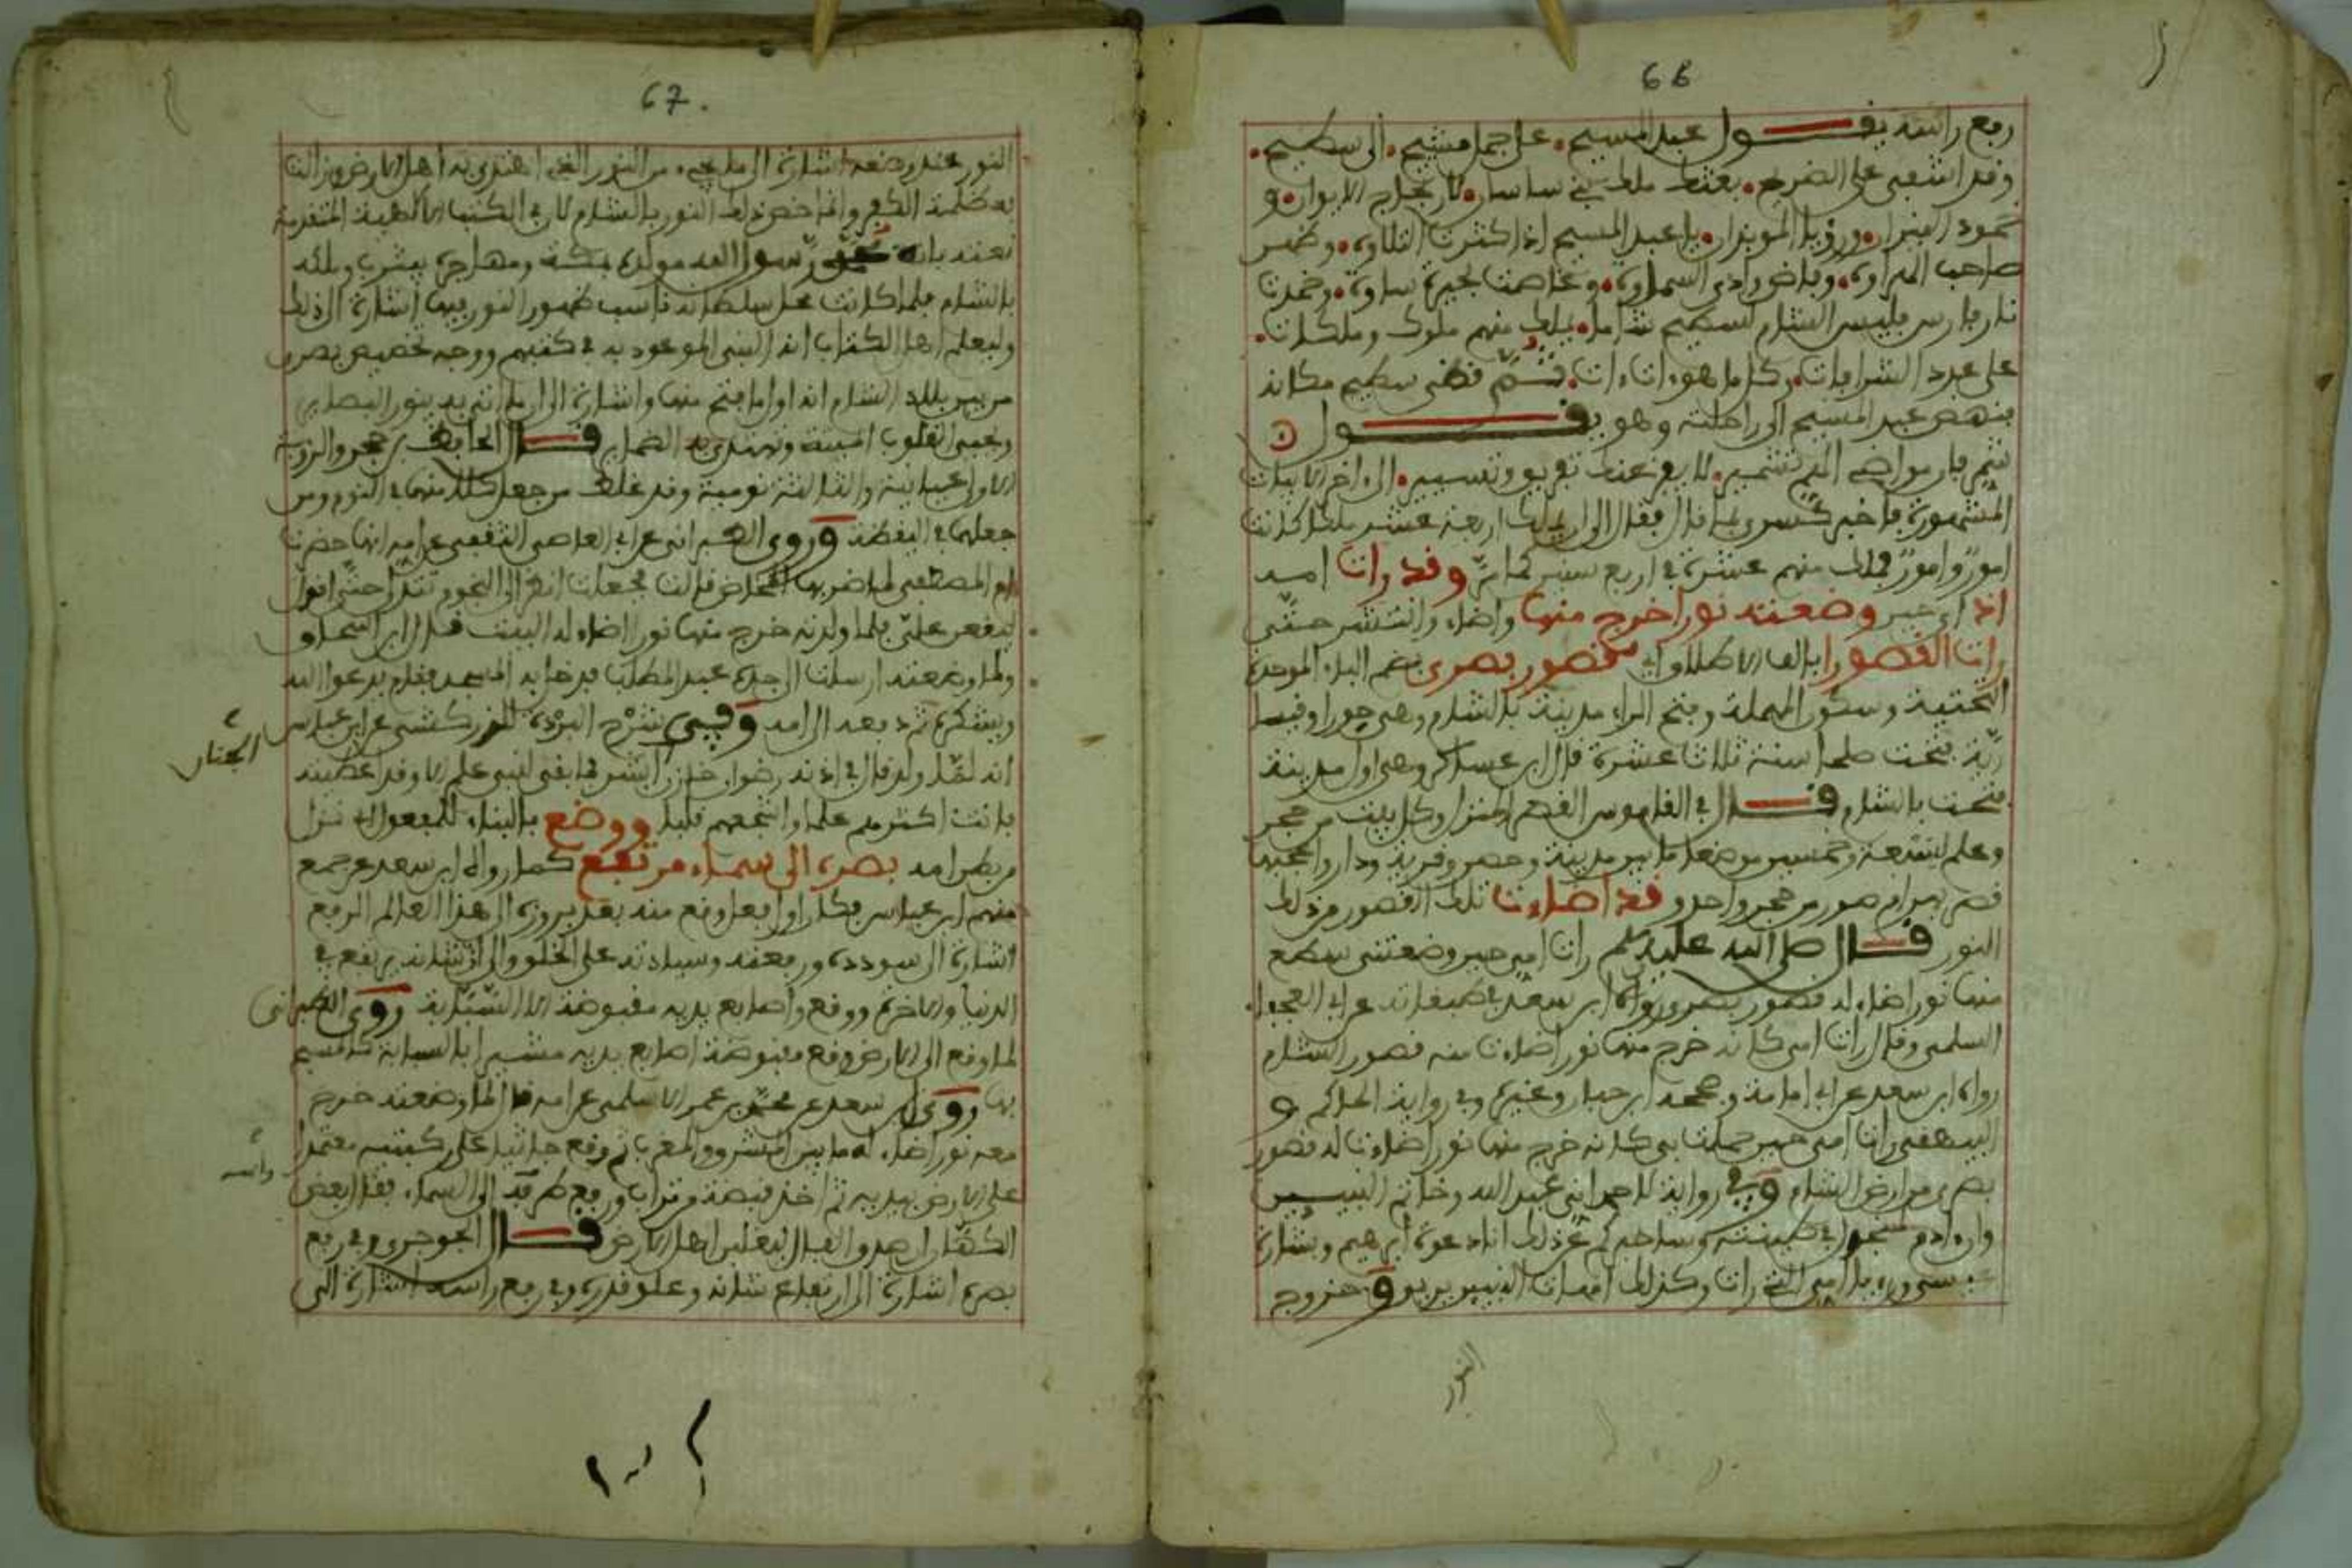 66
رفع راسه يقول عبد المسيح على جمل مشيح الى سطيح
وقد اشفى على الضريح بعثك ملك بني ساسان لارتجاج الايوان و
خمود النيران ورؤيا الموبذان يا عبد المسيح اذا كثرت التلاوة وظهر
صاحب الهراوة وفاض وادي السماوة وغاضت بحيرة ساوة وخمدت
نار فارس فليس الشام لسطيح شاما يملك منهم ملوك وملكات
على عدد الشرافات وكل ما هو ءات ءات ثم قضى سطيح مكانه
فنهض عبد المسيح الى راحلته وهو يقول
شمر فان مواضي الهم تشمير لا يفزعنك تفريق وتسيير الى اخر الابيات
المشهورة فاخبر كسرى بما قال فقال الى ان يملك اربعة عشر ملكا كانت
امور وامور فملك منهم عشرة في اربع سنين وقد رات امه
اذ اي حين وضعته نورا خرج منها واضاء وانتشر حتى
رات القصورا بالف الاطلاق اي قصور بصرى بضم الباء الموحدة
التحتية وسكون المهملة وفتح الراء مدينة بالشام وهي حوران وقيسا
رية فتحت صلحا سنة ثلاث عشرة قال ابن عساكر وهي اول مدينة
فتحت بالشام قال في القاموس القصر المنزل وكل بيت من حجر
وعلم لسبعة وخمسين موضعا ما بين مدينة وحصر وقرية ودار واعجبها
قصر بهرام جور من حجر واحد و قد اضاءت تلك القصور من ذلك
النور قال صلى الله عليه وسلم رات امي حين وضعتني سطع
منها نور اضاء له قصور بصرى رواه ابن سعد في طبقاته عن ابي العجفاء
السلمي وقال رات امي كانه خرج منها نور اضاءت منه قصور الشام
رواه ابن سعد عن ابي امامة وصححه ابن حبان وغيره وفي رواية الحاكم و
البيهقي رات امي حين حملت بي كانه خرج منها نور اضاءت له قصور
بصرى من ارض الشام وفي رواية لاحمد اني عبد الله وخاتم النبيين
وان ءادم لمنجدل في طينته وساخبركم عن ذلك انا دعوة ابراهيم وبشارة
عيسى ورءيا امي التي رات وكذلك امهات النبيين يرين وخروج
النور
67.
النور عند وضعه اشارة الى ما يجيء من النور الذي اهتدى به اهل الارض وزالت
به ظلمة الكفر وانما خص ذلك النور بالشام لان في الكتب الالهية المتقدمة
نعته بانه محمد رسول الله مولده بمكة ومهاجره بيثرب وملكه
بالشام فلما كانت محل سلطانه ناسب ظهور النور فيها اشارة الى ذلك
وليعلم اهل الكتاب انه النبي الموعود به في كتبهم ووجه تخصيص بصرى
من بين بلاد الشام انه اول ما فتح منها واشارة الى انه ينور البصاير
ويحيي القلوب الميتة وتهتدي به الضماير قال الحافظ بن حجر والرؤية
الاولى عيانية والثانية نومية وقد غلط من جعل كلا منهما في النوم ومن
جعلهما في اليقظة وروى الطبراني عن ابي العاصي الثقفي عن امه انها حضرت
ام المصطفى لما ضربها المخاض قالت فجعلت انظر الى النجوم تتدلى حتى اقول
لتقعن علي فلما ولدته خرج منها نور اضاء له البيت قال ابن اسحاق
ولما وضعته ارسلت الى جده عبد المطلب فدخل به المسجد فقام يدعوا الله
ويشكره ثم رد بعد الى امه وفي شرح البردة للزركشي عن ابن عباس
انه لما ولد قال في اذنه رضوان خازن ابشر فما بقي لنبي علم الا وقد اعطيته
الجنان
فانت اكثرهم علما واشجعهم قلبا ووضع بالبناء للمفعول نزل
من بطن امه بصره الى سماء مرتفع كما رواه ابن سعد عن جمع
منهم ابن عباس فكان اول فعل وقع منه بعد بروزه الى هذا العالم الرفع
اشارة الى سودده ورفعته وسيادته على الخلق والى ان شانه يرتفع في
الدنيا والاخرة ووقع واصابع يديه مقبوضة الا السبابة روى الطبراني
لما وقع الى الارض وقع مقبوضة اصابع يديه مشيرا بالسبابة كالمسبح
بها وروى ابن سعد عن محمد بن عمر الاسلمي عن امه قال لما وضعته خرج
معه نور اضاء له ما بين المشرق والمغرب ثم وقع جاثيا على ركبتيه معتمدا
على الارض بيديه ثم اخذ قبضة من تراب ورفع طرفه الى السماء فقال بعض
راسه
الكفار ان صدق الفال ليغلبن اهل الارض قال الجوجري وفي رفع
بصره اشارة الى ارتفاع شانه وعلو قدره وفي رفع راسه اشارة الى